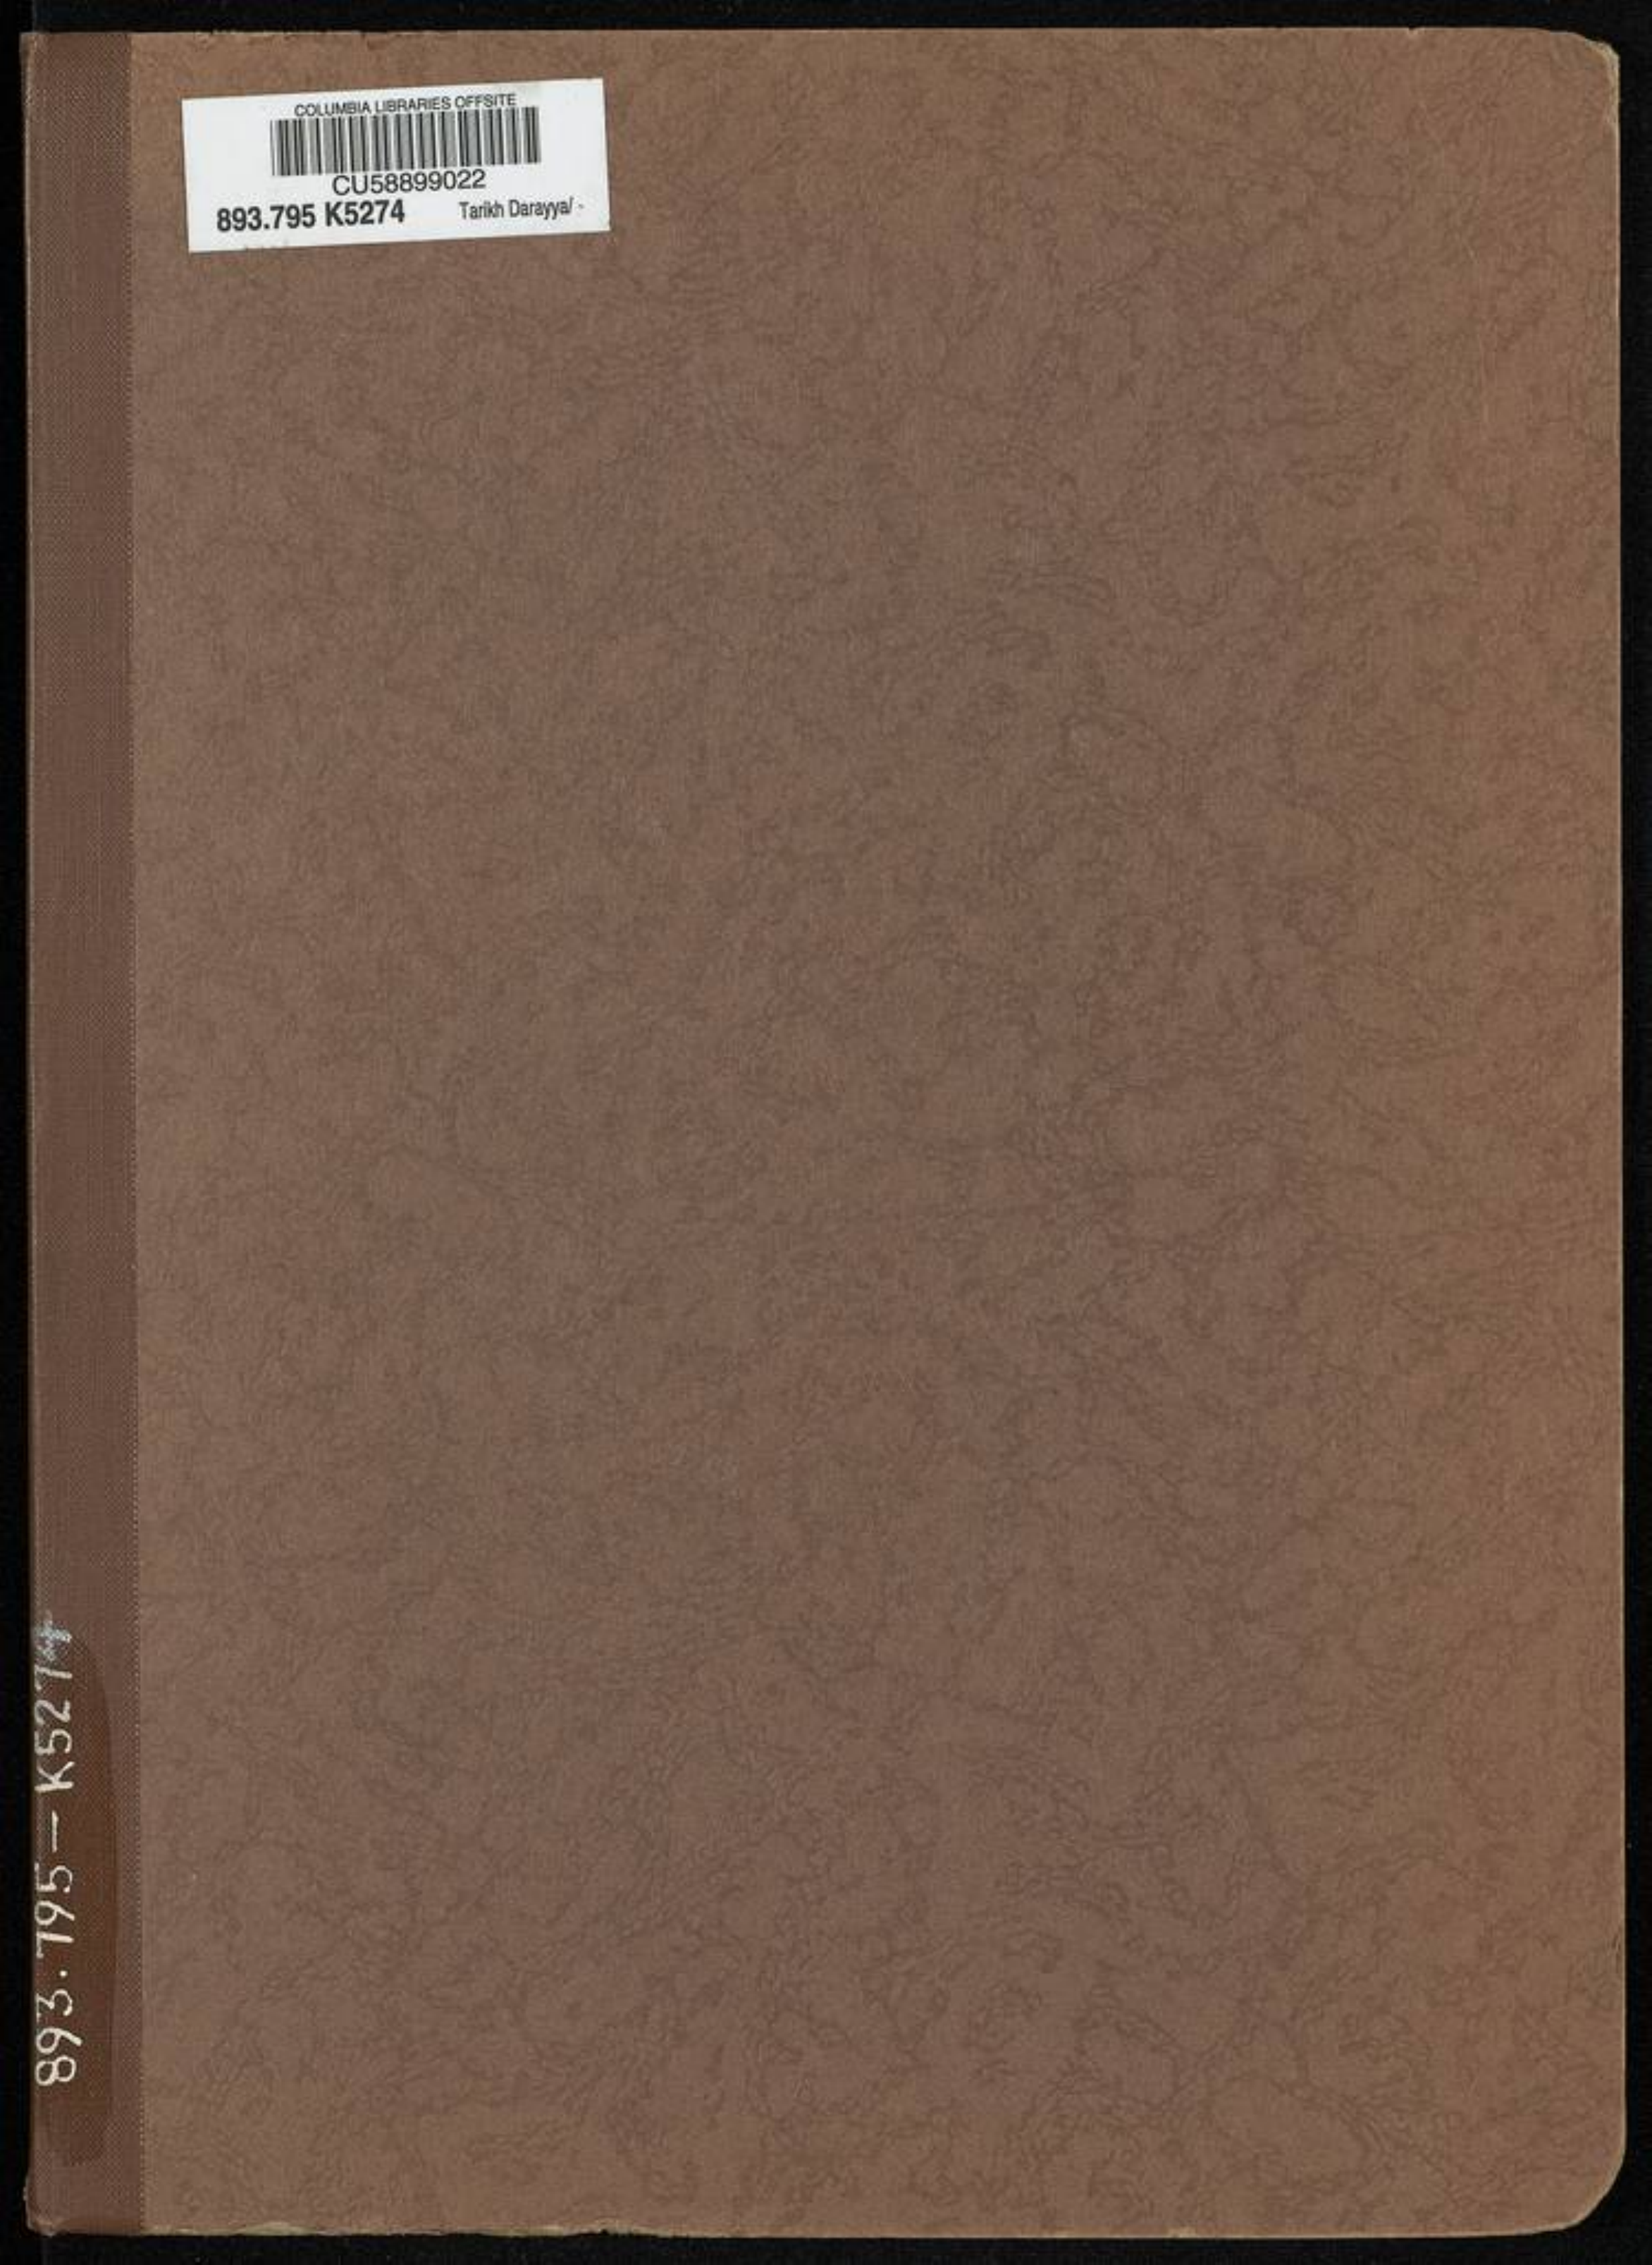 COLUMBIA LIBRARIES OFFSITE
CU58899022
893.795 K5274 Tarikh Darayya/ -
893.795—K5274